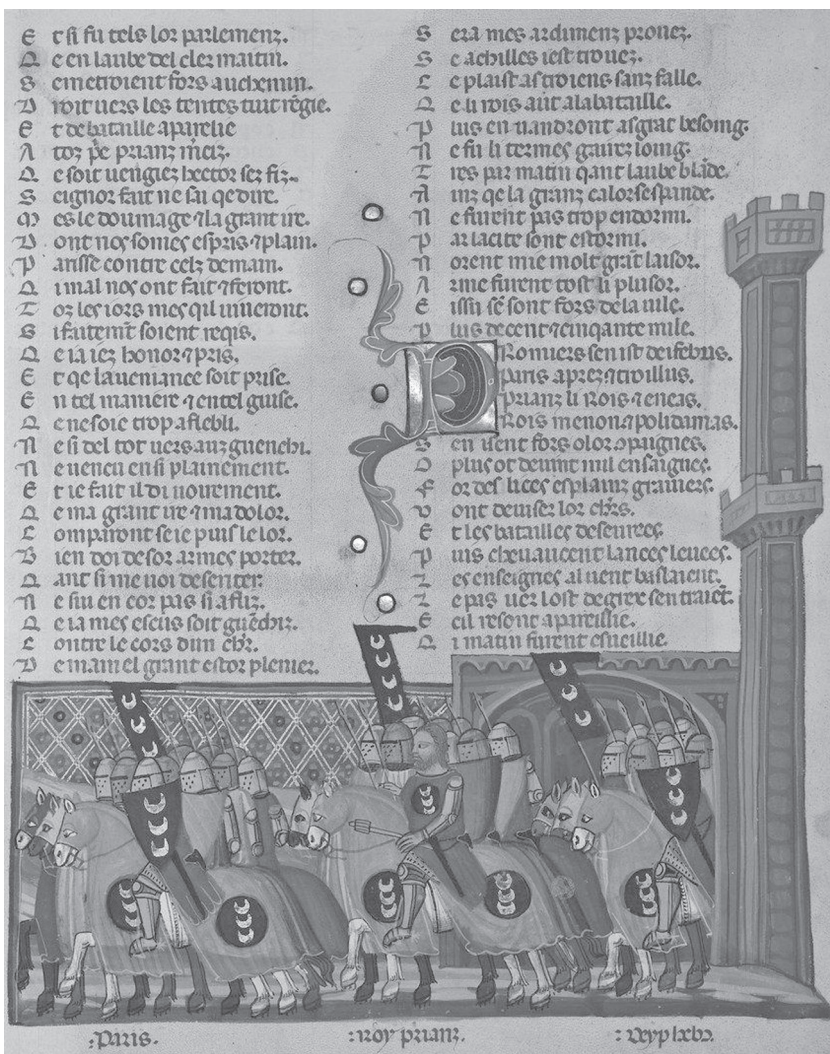 E t si fu tels lor parlemenz.
Q e en laube del cler maitin.
S e metroient fors au chemin.
D roit uers les tentes tuit regie.
E t de bataille aparelie
A toz pe prianz merz.
Q e soit uengiez hector sez fiz.
S eignor fait ne sai qe dire.
M es le doumage 7 la grant ire.
D ont nos somes espris 7 plain.
P arisse contre celz demain.
Q i mal nos ont fait 7 feront.
T oz les iors mes qil uiueront.
S i faitement soient reqis.
Q e ia iez honor 7 pris.
E t qe la ueniance soit prise.
E n tel maniere 7 en tel guise.
Q e ne soie trop aflebli.
N e si del tot uers auz guenchi.
N e uencu ensi plainement.
E t ie fait il di uoirement.
Q e ma grant ire 7 ma dolor.
C omparront se ie puis le lor.
B ien doi desor armes porter.
Q ant si me uoi desenter.
N e sui encor pas si afliz.
Q e ia mes escus soit guenchiz.
C ontre le cors dun chr.
D emain el grant estor plenier.
S era mes ardimenz prouez.
S e achilles iest trouez.
C e plaist as troiens sanz falle.
Q e li rois aut a la bataille.
P lus en uandront as grat besoing.
N e fu li termes gaires loing.
T res par matin qant laube blade.
A inz qe la granz calor sespande.
N e furent pas trop endormi.
P ar la cite sont estormi.
N orent mie molt grat laisor.
A rme furent tost li plusor.
E issu se sont fors de la uile.
P lus de cent 7 cinqante mile.
P Romiers sen ist deifebus.
Paris aprez 7 troillus.
Prianz li Rois 7 eneas.
Rois menon 7 polidamas.
S en issent fors o lor conpaignes.
O plus ot de uint mil ensaignes.
F or des lices es plainz graniers.
V ont deuiser lor chrs.
E t les batailles deseurees.
P uis cheuaucent lances leuees.
L es enseignes al uent baslaient.
L e pas uer lost de grece sen traient.
E cil resont apareillie.
Q i matin furent esueillie.
:Paris.
:roy prianz.
: deyphebus.